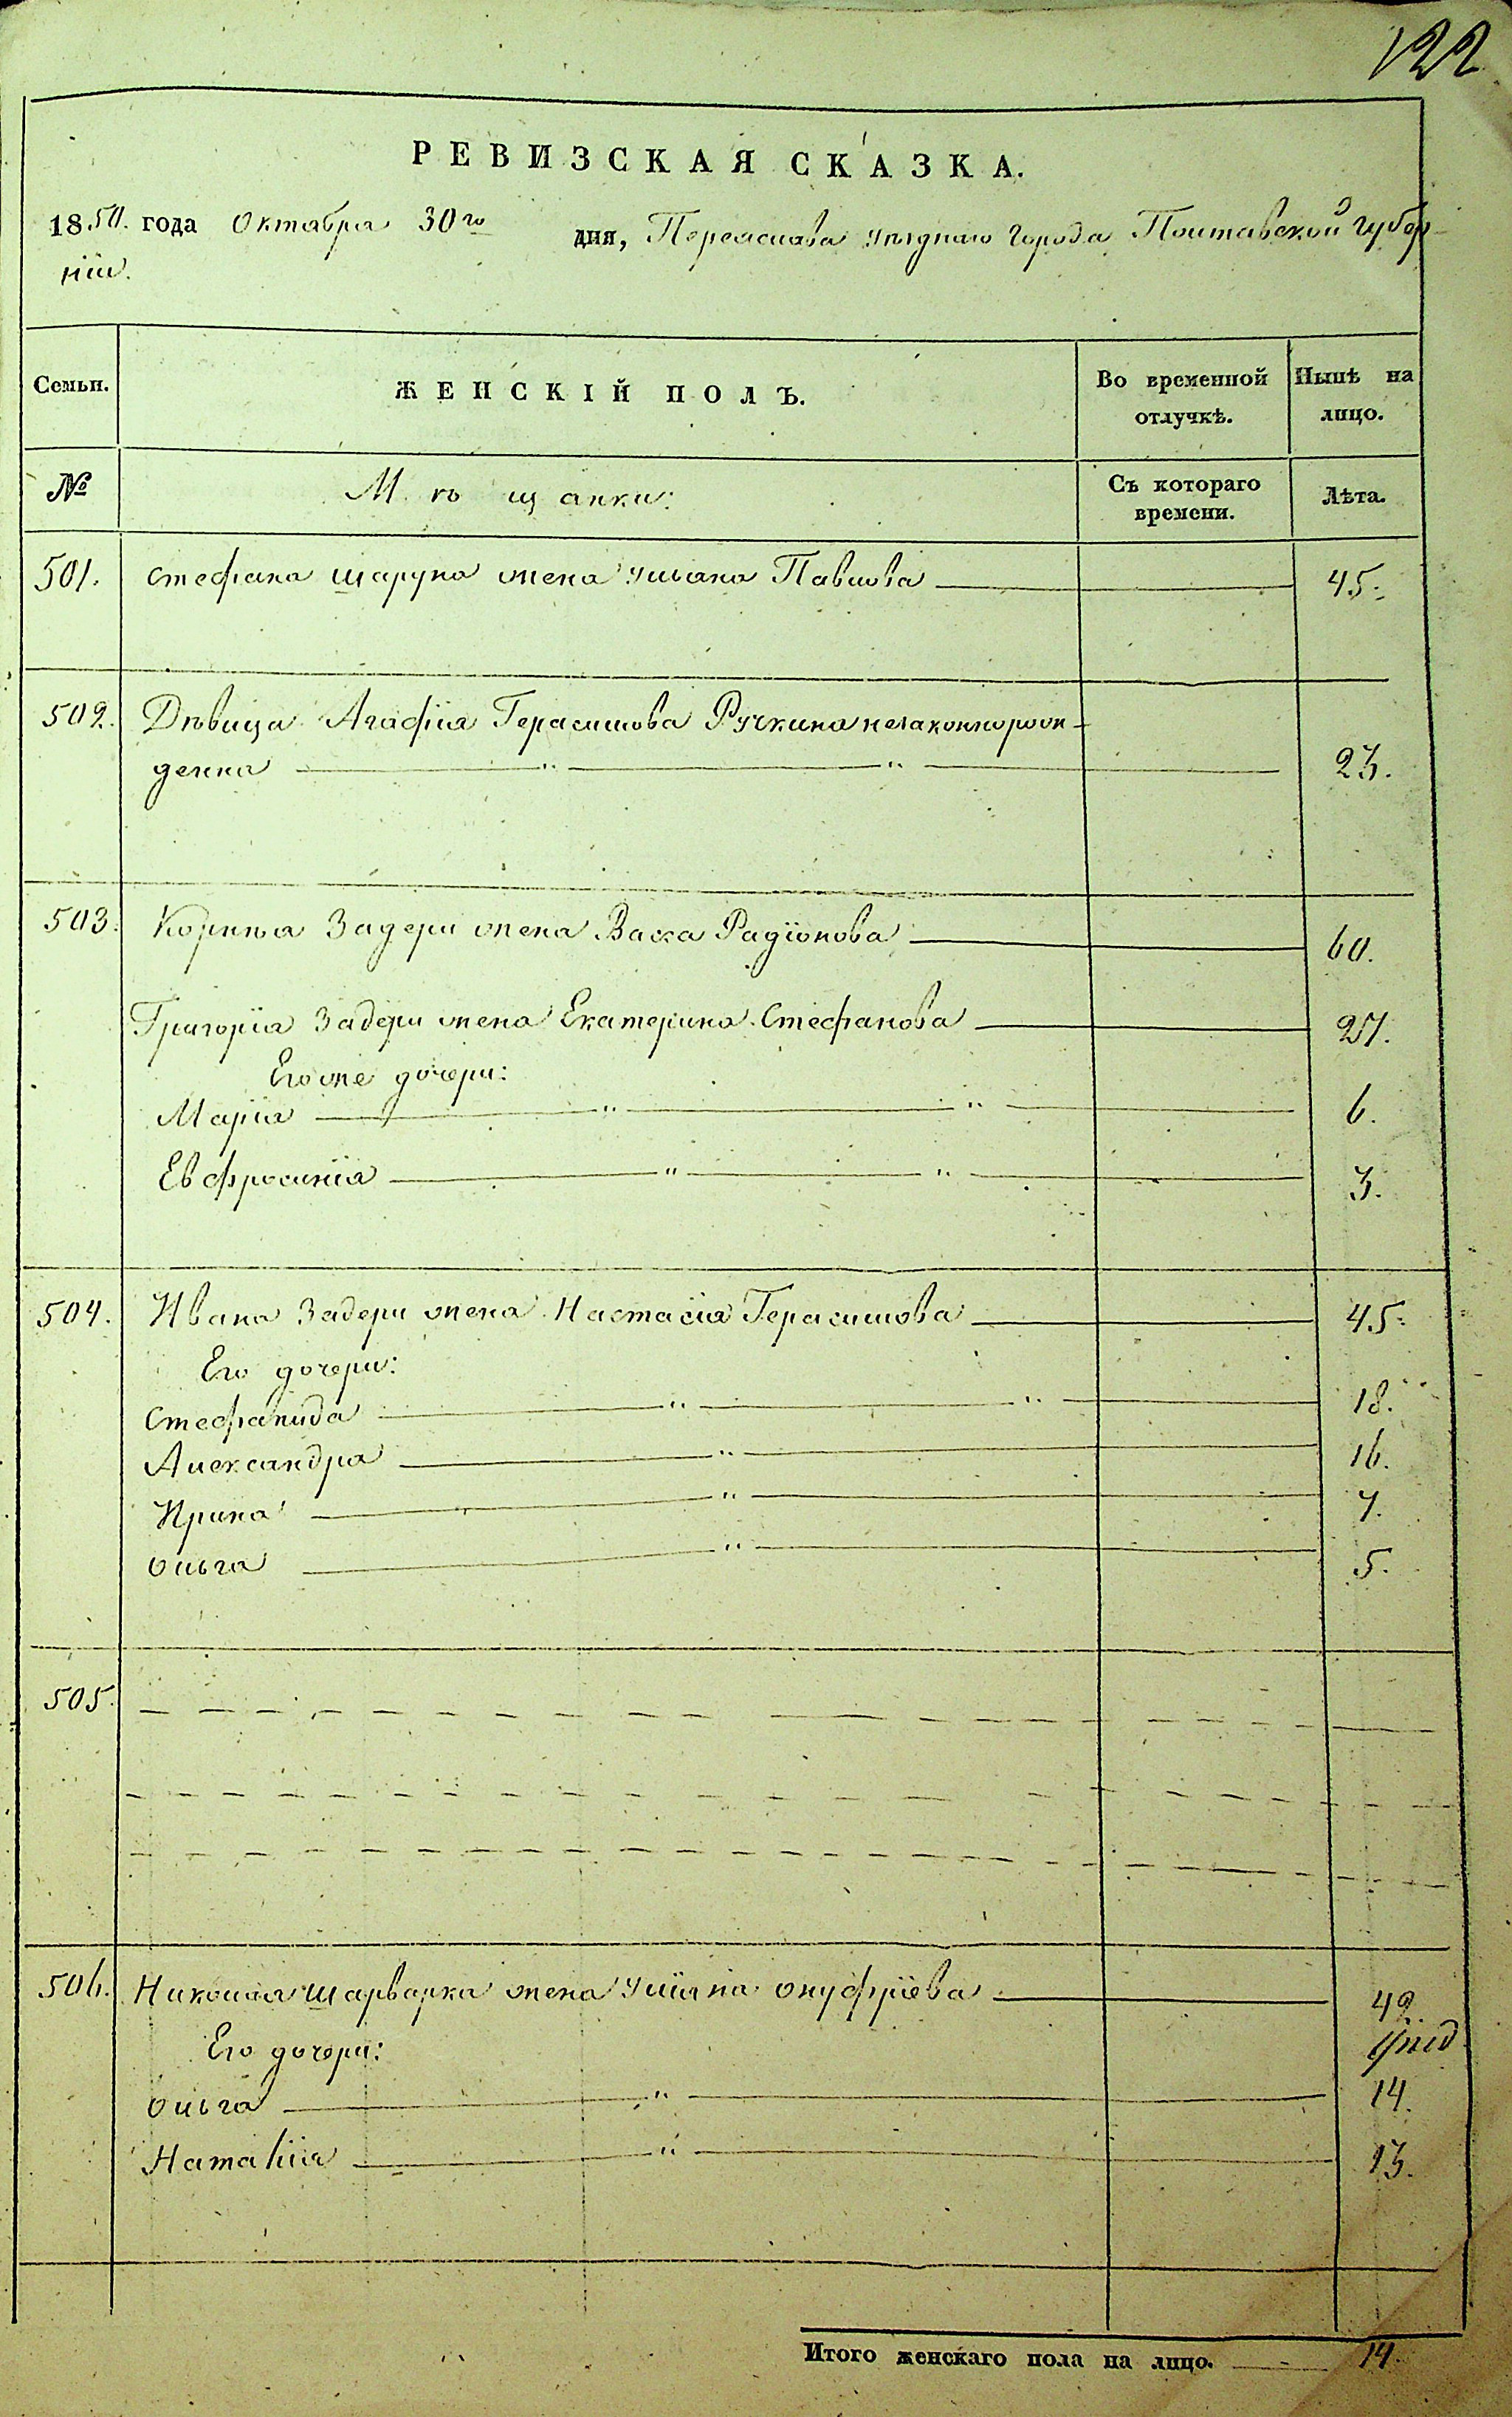 122
РЕВИЗСКАЯ СКАЗКА.
1850. года Октября 30го дня, Переяслава уѣзднаго города Полтавской губер-
ніи.
Семьи. ЖЕНСКІЙ ПОЛЪ. Во временной отлучкѣ. Нынѣ на лицо.
№ Мѣщанки: Съ котораго времени. Лѣта.
501. Стефана Шаруна жена Ульяна Павлова 45.
502. Дѣвица Агафія Герасимова Ручкина незаконнорож-
денна 23.
503. Корнѣя Задери жена Васса Радіонова 60.
Григорія Задери жена Екатерина Стефанова 27.
Его же дочери:
Марія 6.
Евфросинія 3.
504. Ивана Задери жена Настасія Герасимова 45.
Его дочери:
Стефанида 18.
Александра 16.
Ирина 7.
Ольга 5.
505.
506. Николая Шарварка жена Уліяна Онуфріева 42.
Его дочери:
Ольга 14.
Наталія 13.
Итого женскаго пола на лицо. 14.